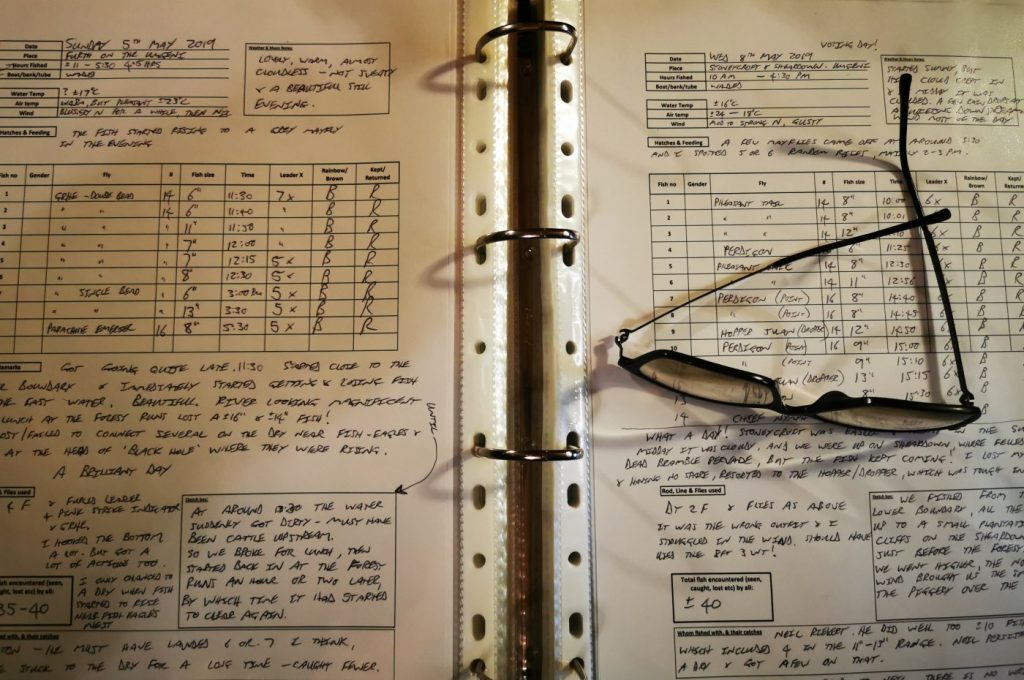 Date SUNDAY 5TH MAY 2019
Place FURTH ON THE UMGENI
Hours Fished ±11 - 5:30 4.5 HRS
Boat/bank/tube WADED
Weather & Moon Notes
LOVELY, WARM, ALMOST
CLOUDLESS - NOT SWEATY
& A BEAUTIFUL STILL
EVENING.
Water Temp ? ±17°C
Air temp WARM, BUT PLEASANT ±23°C
Wind BLUSTERY N FOR A WHILE, THEN NIL
Hatches & Feeding THE FISH STARTED RISING TO A GREY MAYFLY
IN THE EVENING
Fish no Gender Fly # Fish size Time Leader X Rainbow/Brown Kept/Returned
1 GRHE - DOUBLE BEAD 14 6" 11:30 7x B R
2 " " 14 6" 11:40 " B R
3 " " 11" 11:50 " B R
4 " " 7" 12:00 " B R
" " 7" 12:15 5x B R
" " 8" 12:30 5x B R
" SINGLE BEAD " 6" 3:00 5x B R
" " " 13" 3:30 5x B R
PARACHUTE EMERGER 16 8" 5:30 5x B R
Remarks GOT GOING QUITE LATE. 11:30 STARTED CLOSE TO THE
BOUNDARY & IMMEDIATELY STARTED GETTING & LOSING FISH
THE EAST WATER. BEAUTIFUL RIVER LOOKING MAGNIFICENT
LUNCH AT THE FOREST RUNS LOST A ±16" & ±14" FISH! UNTIL
LOST/FAILED TO CONNECT SEVERAL ON THE DRY NEAR FISH-EAGLES &
AT THE HEAD OF 'BLACK HOLE' WHERE THEY WERE RISING.
A BRILLIANT DAY
& Flies used
4 F & FURLED LEADER
+ PINK STRIKE INDICATOR
& GRHE.
I HOOKED THE BOTTOM
A LOT - BUT GOT A
LOT OF ACTION TOO.
fish encountered (seen,
caught, lost etc) by all:
35-40
I ONLY CHANGED TO
A DRY WHEN FISH
STARTED TO RISE
NEAR FISH EAGLES
NEST
Sketch box:
AT AROUND 12:30 THE WATER
SUDDENLY GOT DIRTY - MUST HAVE
BEEN CATTLE UPSTREAM.
SO WE BROKE FOR LUNCH, THEN
STARTED BACK IN AT THE FOREST
RUNS AN HOUR OR TWO LATER,
BY WHICH TIME IT HAD STARTED
TO CLEAR AGAIN.
fished with, & their catches
HE MUST HAVE LANDED 6 OR 7 I THINK,
STUCK TO THE DRY FOR A LONG TIME - CAUGHT FEWER.
VOTING DAY!
Date WED 8TH MAY 2019
Place STONEYCROFT & SHEARDOWN. UMGENI
Hours Fished 10 AM - 4:30 PM
Boat/bank/tube WADED
Weather & Moon Notes
STARTED SUNNY, BUT
CLOUD CREPT IN
& MIDDAY IT WAS
CLOUDED. A FEW RAIN DROPS AT
WIND MOST OF THE DAY
Water Temp ±16°C
Air temp ±24 - 18°C
Wind MOD TO STRONG N, GUSTY
Hatches & Feeding A FEW MAYFLIES CAME OFF AT AROUND 3:30
AND I SPOTTED 5 OR 6 RANDOM RISES, MAINLY 2-3 PM.
Fish no Gender Fly # Fish size Time Leader X Rainbow/Brown Kept/Returned
1 PHEASANT TAIL 14 8" 10:00 6x B R
2 " " 14 8" 10:01 B R
3 " " 14 12" 10 B R
4 PERDIGON 6" 11:25 B R
5 PHEASANT 14 8" 12:30 B R
6 14 11" 12:56 B R
7 PERDIGON (POINT) 16 8" 14:40 B R
(POINT) 16 8" 14:45 B
9 HOPPER (DROPPER) 14 12" 14:50 B
10 PERDIGON POINT 16 09" 15:00 6x B
(POINT 9" 15:10 6x B
(DROPPER) 13" 15:15 6x B
15:30 6x B
14
WHAT A DAY! STONEYCROFT WAS IN THE
MIDDAY IT WAS CLOUDY, AND WE WERE UP ON SHEARDOWN, WHERE FELLED
DEAD BRAMBLE PERVADE, BUT THE FISH KEPT COMING! I LOST MY
& HAVING NO SPARE, RESORTED TO THE HOPPER/DROPPER, WHICH WAS TOUGH IN
Rod, Line & Flies used
DT 2F & FLIES AS ABOVE
IT WAS THE WRONG OUTFIT & I
STRUGGLED IN THE WIND. SHOULD HAVE
USED THE 3 WT!
Total fish encountered (seen,
caught, lost etc) by all:
± 40
Sketch box:
WE FISHED FROM
LOWER BOUNDARY, ALL THE
UP TO A SMALL
CLIFFS ON THE SHEARDOWN
JUST BEFORE THE FOREST
WE WENT HIGHER, THE
WIND BROUGHT US THE
THE PIGGERY OVER THE
Whom fished with, & their catches
NEIL. HE DID WELL TOO ±10 FISH
WHICH INCLUDED 4 IN THE 11"-13" RANGE. NEIL
A DAY & GOT A FEW ON THAT.
THERE IS NO